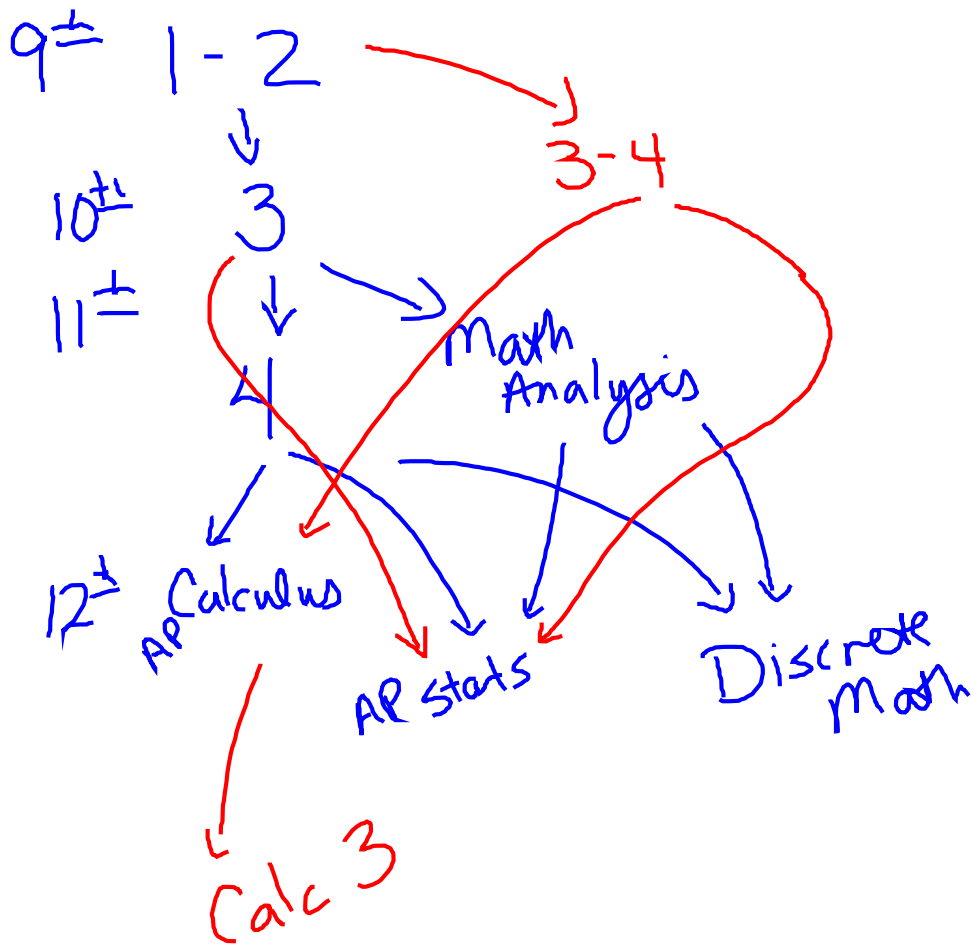 9th 1-2
3-4
10th 3
11th
Math
Analysis
4
12th AP Calculus
AP Stats
Discrete
Math
Calc 3